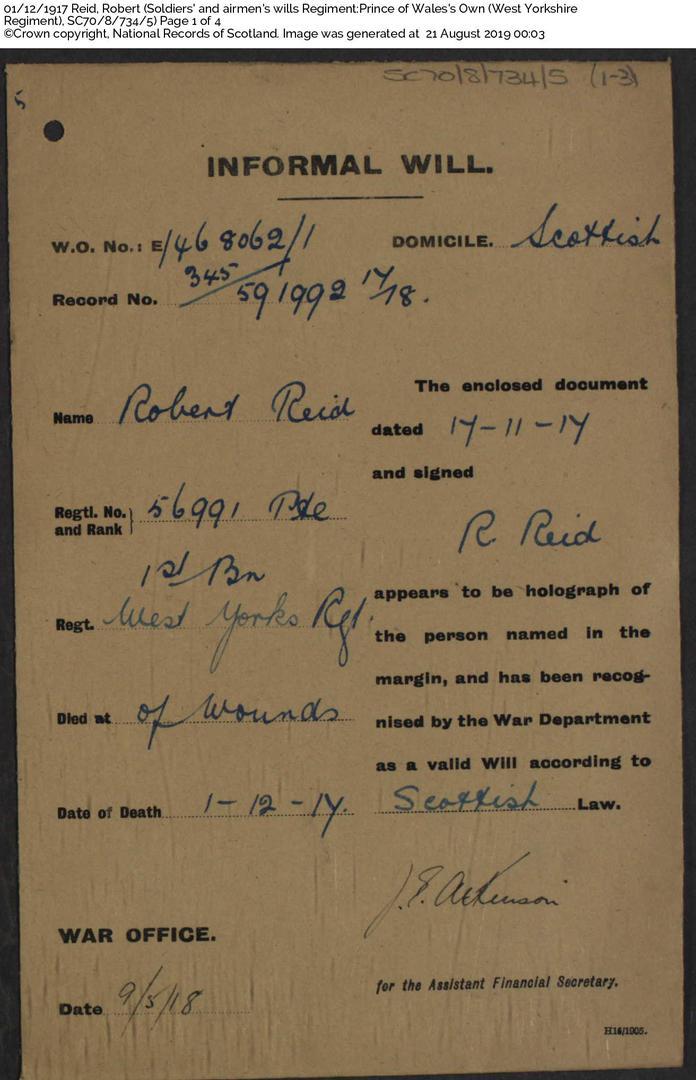 01/12/1917 Reid, Robert (Soldiers' and airmen's wills Regiment:Prince of Wales's Own (West Yorkshire
Regiment), SC70/8/734/5) Page 1 of 4
©Crown copyright, National Records of Scotland. Image was generated at 21 August 2019 00:03
SC70/8/734/5 (1-3)
5
INFORMAL WILL.
W.O. No.: E/468062/1 DOMICILE. Scottish
345
Record No. 591992 17/18.
Name Robert Reid
The enclosed document
dated 17-11-17
and signed
R Reid
appears to be holograph of
the person named in the
margin, and has been recog-
nised by the War Department
as a valid Will according to
Scottish Law.
Regtl. No. and Rank } 56991 Pte
1st Bn
Regt. West Yorks Rgt.
Died at of Wounds
Date of Death 1-12-17.
J.E. Atkinson
for the Assistant Financial Secretary.
WAR OFFICE.
Date 9/5/18
H16/1905.